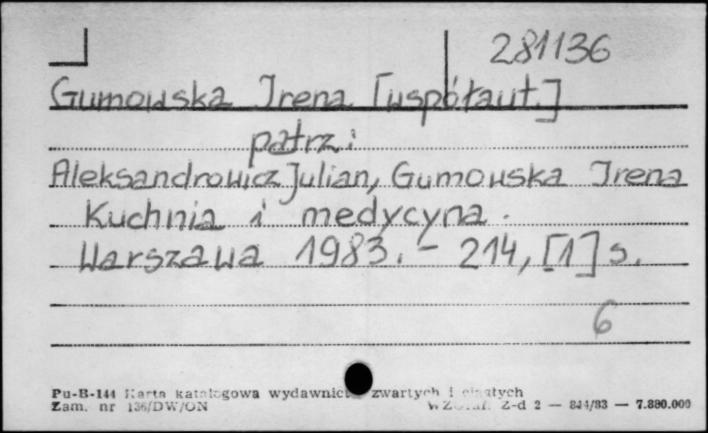 281136
Gumowska Irena [współaut.]
patrz:
Aleksandrowicz Julian, Gumowska Irena
Kuchnia i medycyna.
Warszawa 1983. - 214, [1] s.
6
Pu-B-144 Karta katalogowa wydawnictw zwartych i ciągłych
Zam. nr 136/DW/ON Z-d 2 — 844/83 — 7.880.000